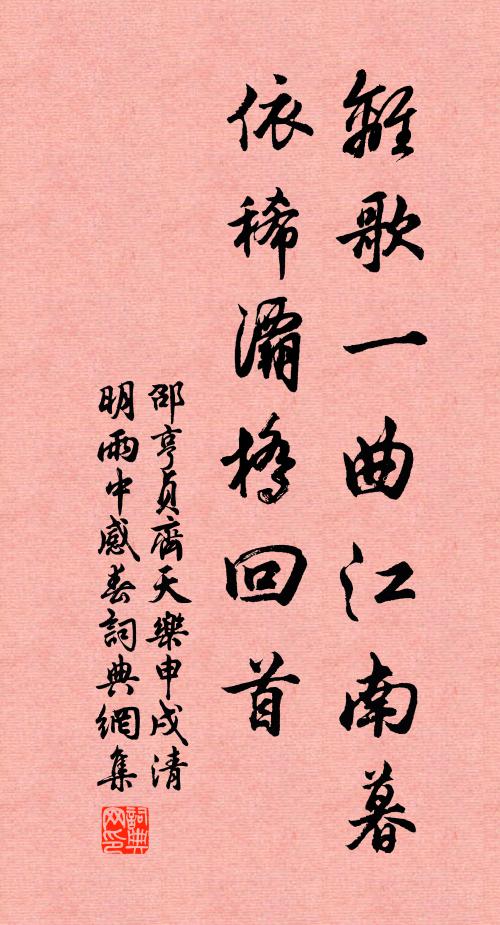 離歌一曲江南暮
依稀灞橋回首
邵亨貞齊天樂申戌清
明雨中感春詞典網集
詞典网印